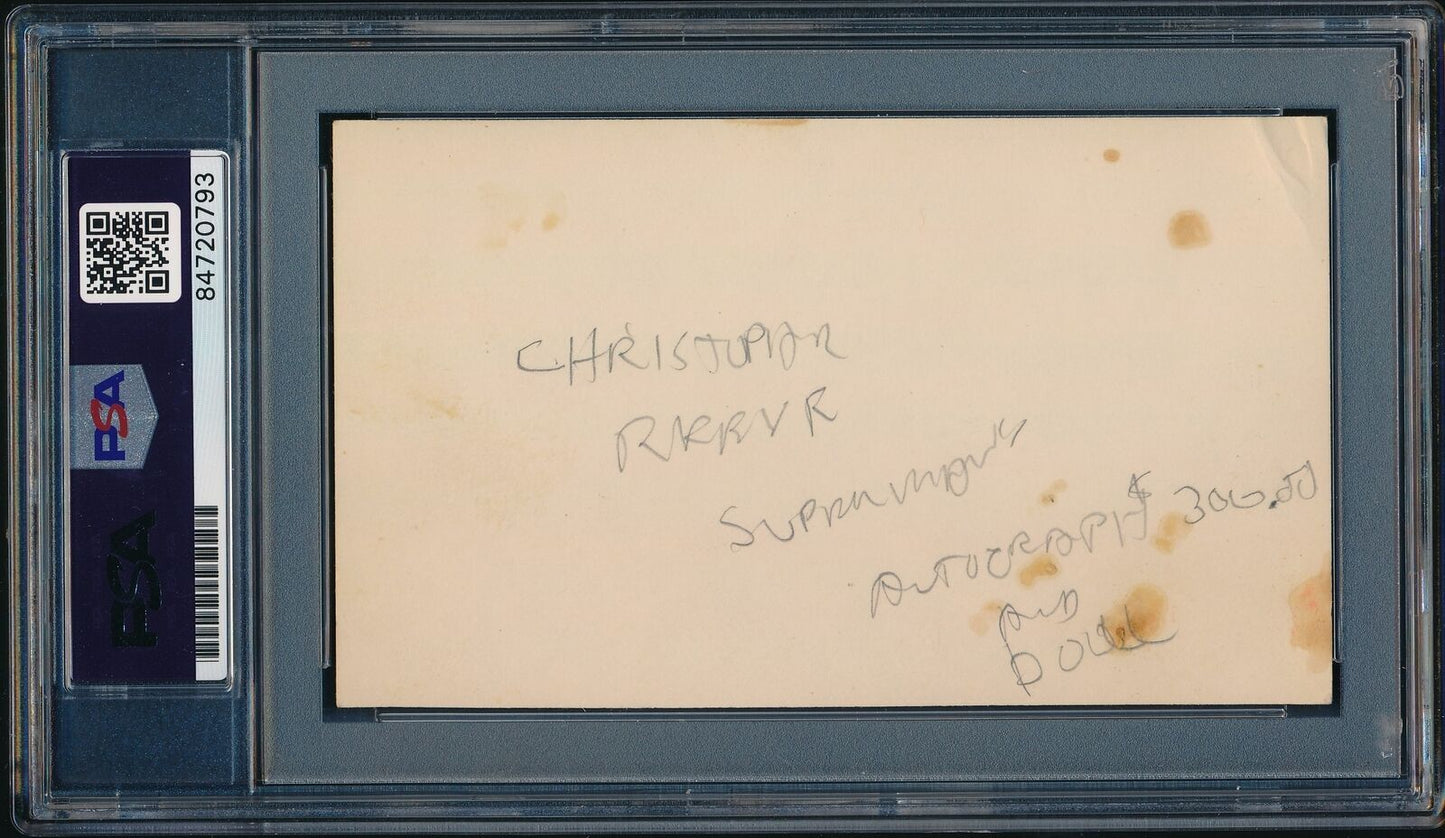 84720793
PSA
PSA
CHRISTOPHER
REEVE
SUPERMAN'S
AUTOGRAPH $300.00
AND
DOLL